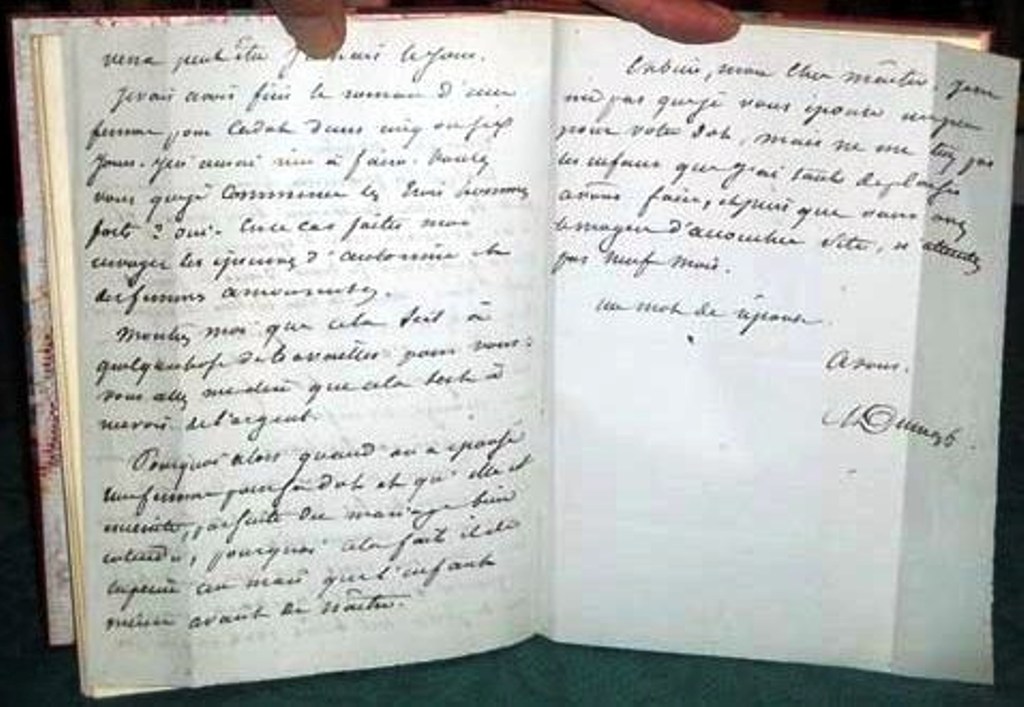 verra peut être jamais le jour.
J'aurai fini le roman d'une
femme pour Cadot dans cinq ou six
jours. Je n'aurai rien à faire. Voulez
vous que je commence les trois hommes
forts? oui. En ce cas faites moi
envoyer les épreuves d'
des femmes amoureuses.
Montrez moi que cela sert à
quelque chose de travailler pour vous:
vous allez me dire que cela sert à
avoir de l'argent.
Pourquoi alors quand on a épousé
une femme pour sa dot et qu'elle est
enceinte, par suite du mariage bien
entendu, pourquoi cela fait il de
la peine au mari que l'enfant
meure avant de naître.
Enfin, mon cher maître, je ne
nie pas que je vous épouse un peu
pour votre dot, mais ne me tuez pas
les enfans que j'ai tant de plaisir
à vous faire, et puis que vous avez
le moyen d'accoucher vite, n'attendez
pas neuf mois.
un mot de réponse.
A vous.
ADumasf.